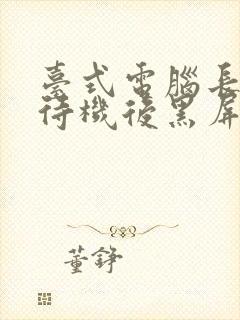 臺式電腦長
待機後黑屏
董錚